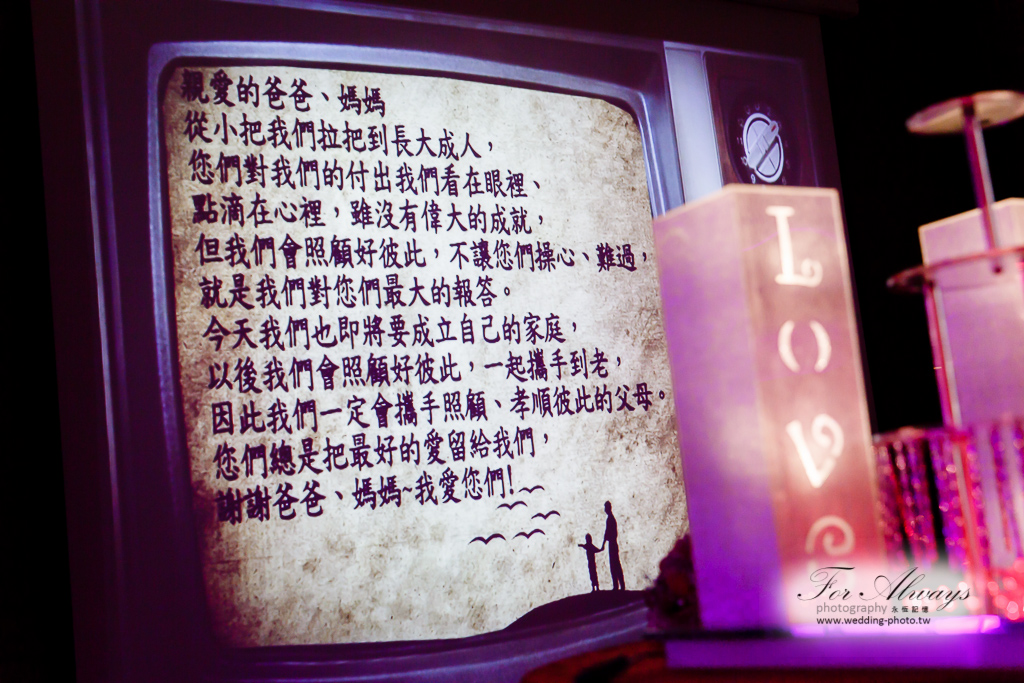 親愛的爸爸、媽媽
從小把我們拉把到長大成人，
您們對我們的付出我們看在眼裡、
點滴在心裡，雖沒有偉大的成就，
但我們會照顧好彼此，不讓您們操心、難過，
就是我們對您們最大的報答。
今天我們也即將要成立自己的家庭，
以後我們會照顧好彼此，一起攜手到老，
因此我們一定會攜手照顧、孝順彼此的父母。
您們總是把最好的愛留給我們，
謝謝爸爸、媽媽~我愛您們!
LOVE
For Always
photography 永恆記憶
www.wedding-photo.tw